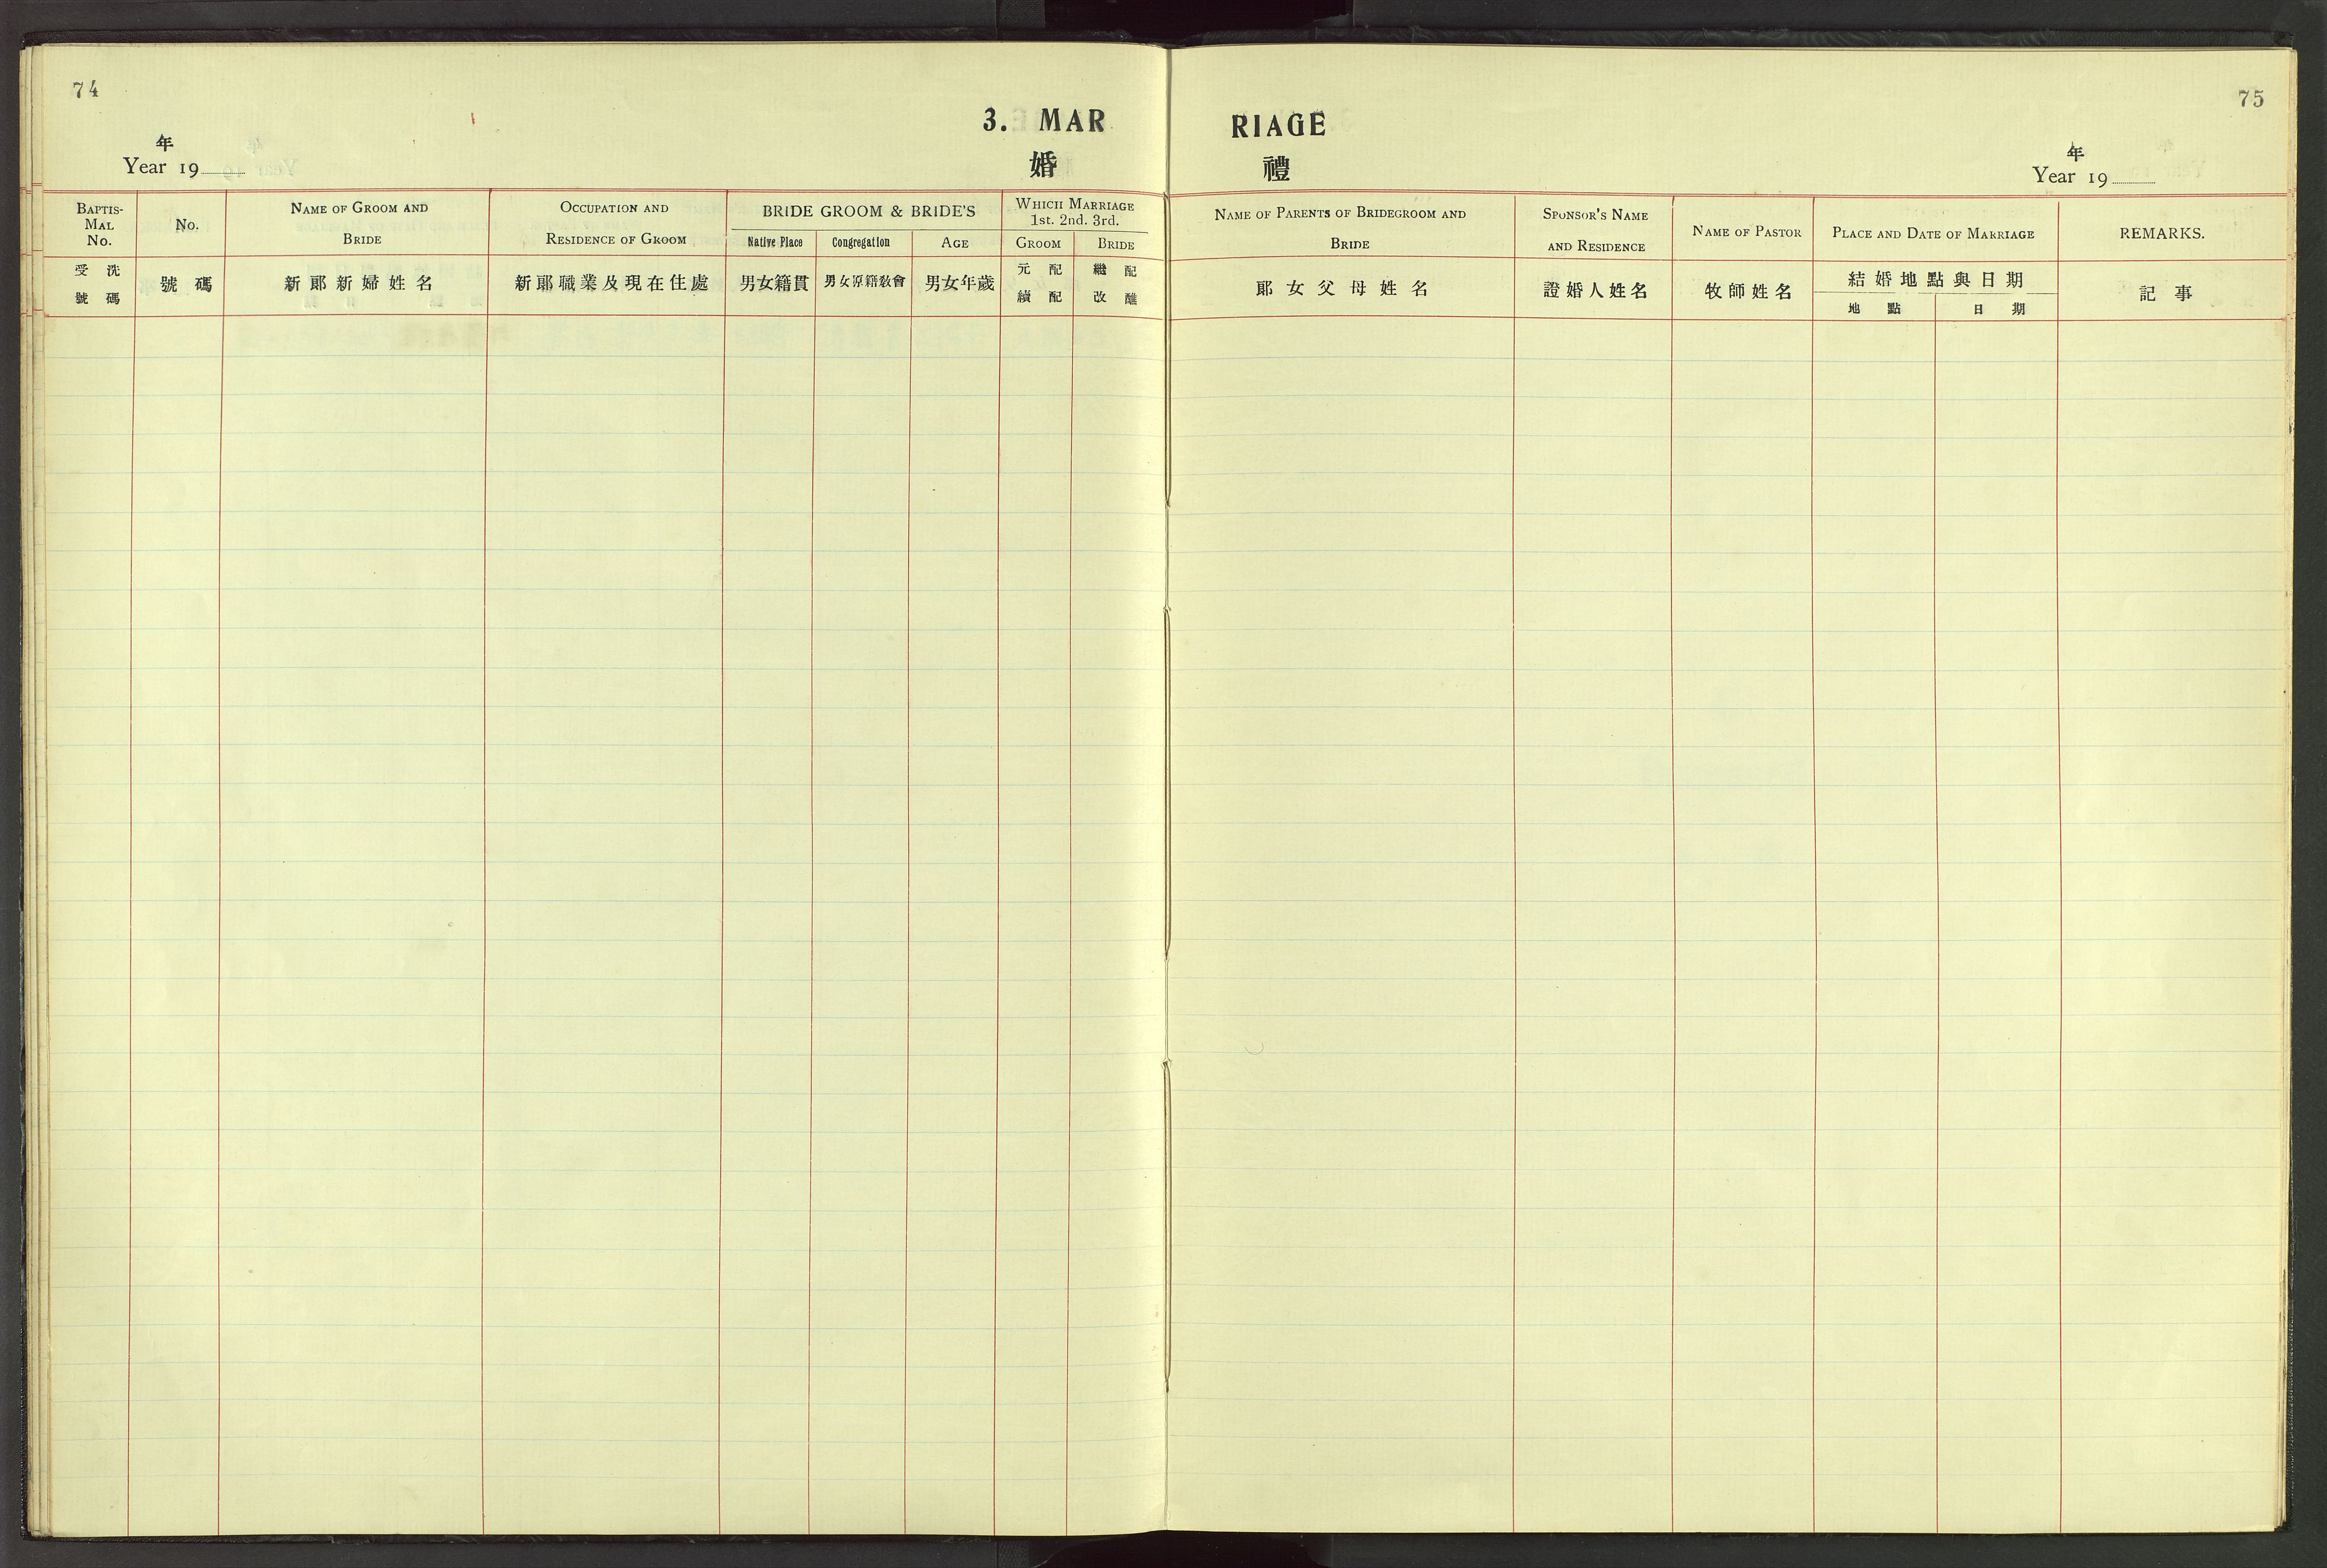 74
75
3. MARRIAGE
婚禮
年
Year 19
年
Year 19
BAPTIS-
MAL
No.
No.
NAME OF GROOM AND
BRIDE
OCCUPATION AND
RESIDENCE OF GROOM
BRIDE GROOM & BRIDE'S
Native Place
Congregation
AGE
WHICH MARRIAGE
1st. 2nd. 3rd.
GROOM
BRIDE
NAME OF PARENTS OF BRIDEGROOM AND
BRIDE
SPONSOR'S NAME
AND RESIDENCE
NAME OF PASTOR
PLACE AND DATE OF MARRIAGE
REMARKS.
受洗
號碼
號碼
新郞新婦姓名
新郞職業及現在住處
男女籍貫
男女原籍敎會
男女年歲
元配
續配
繼配
改醮
郞女父母姓名
證婚人姓名
牧師姓名
結婚地點與日期
地點
日期
記事